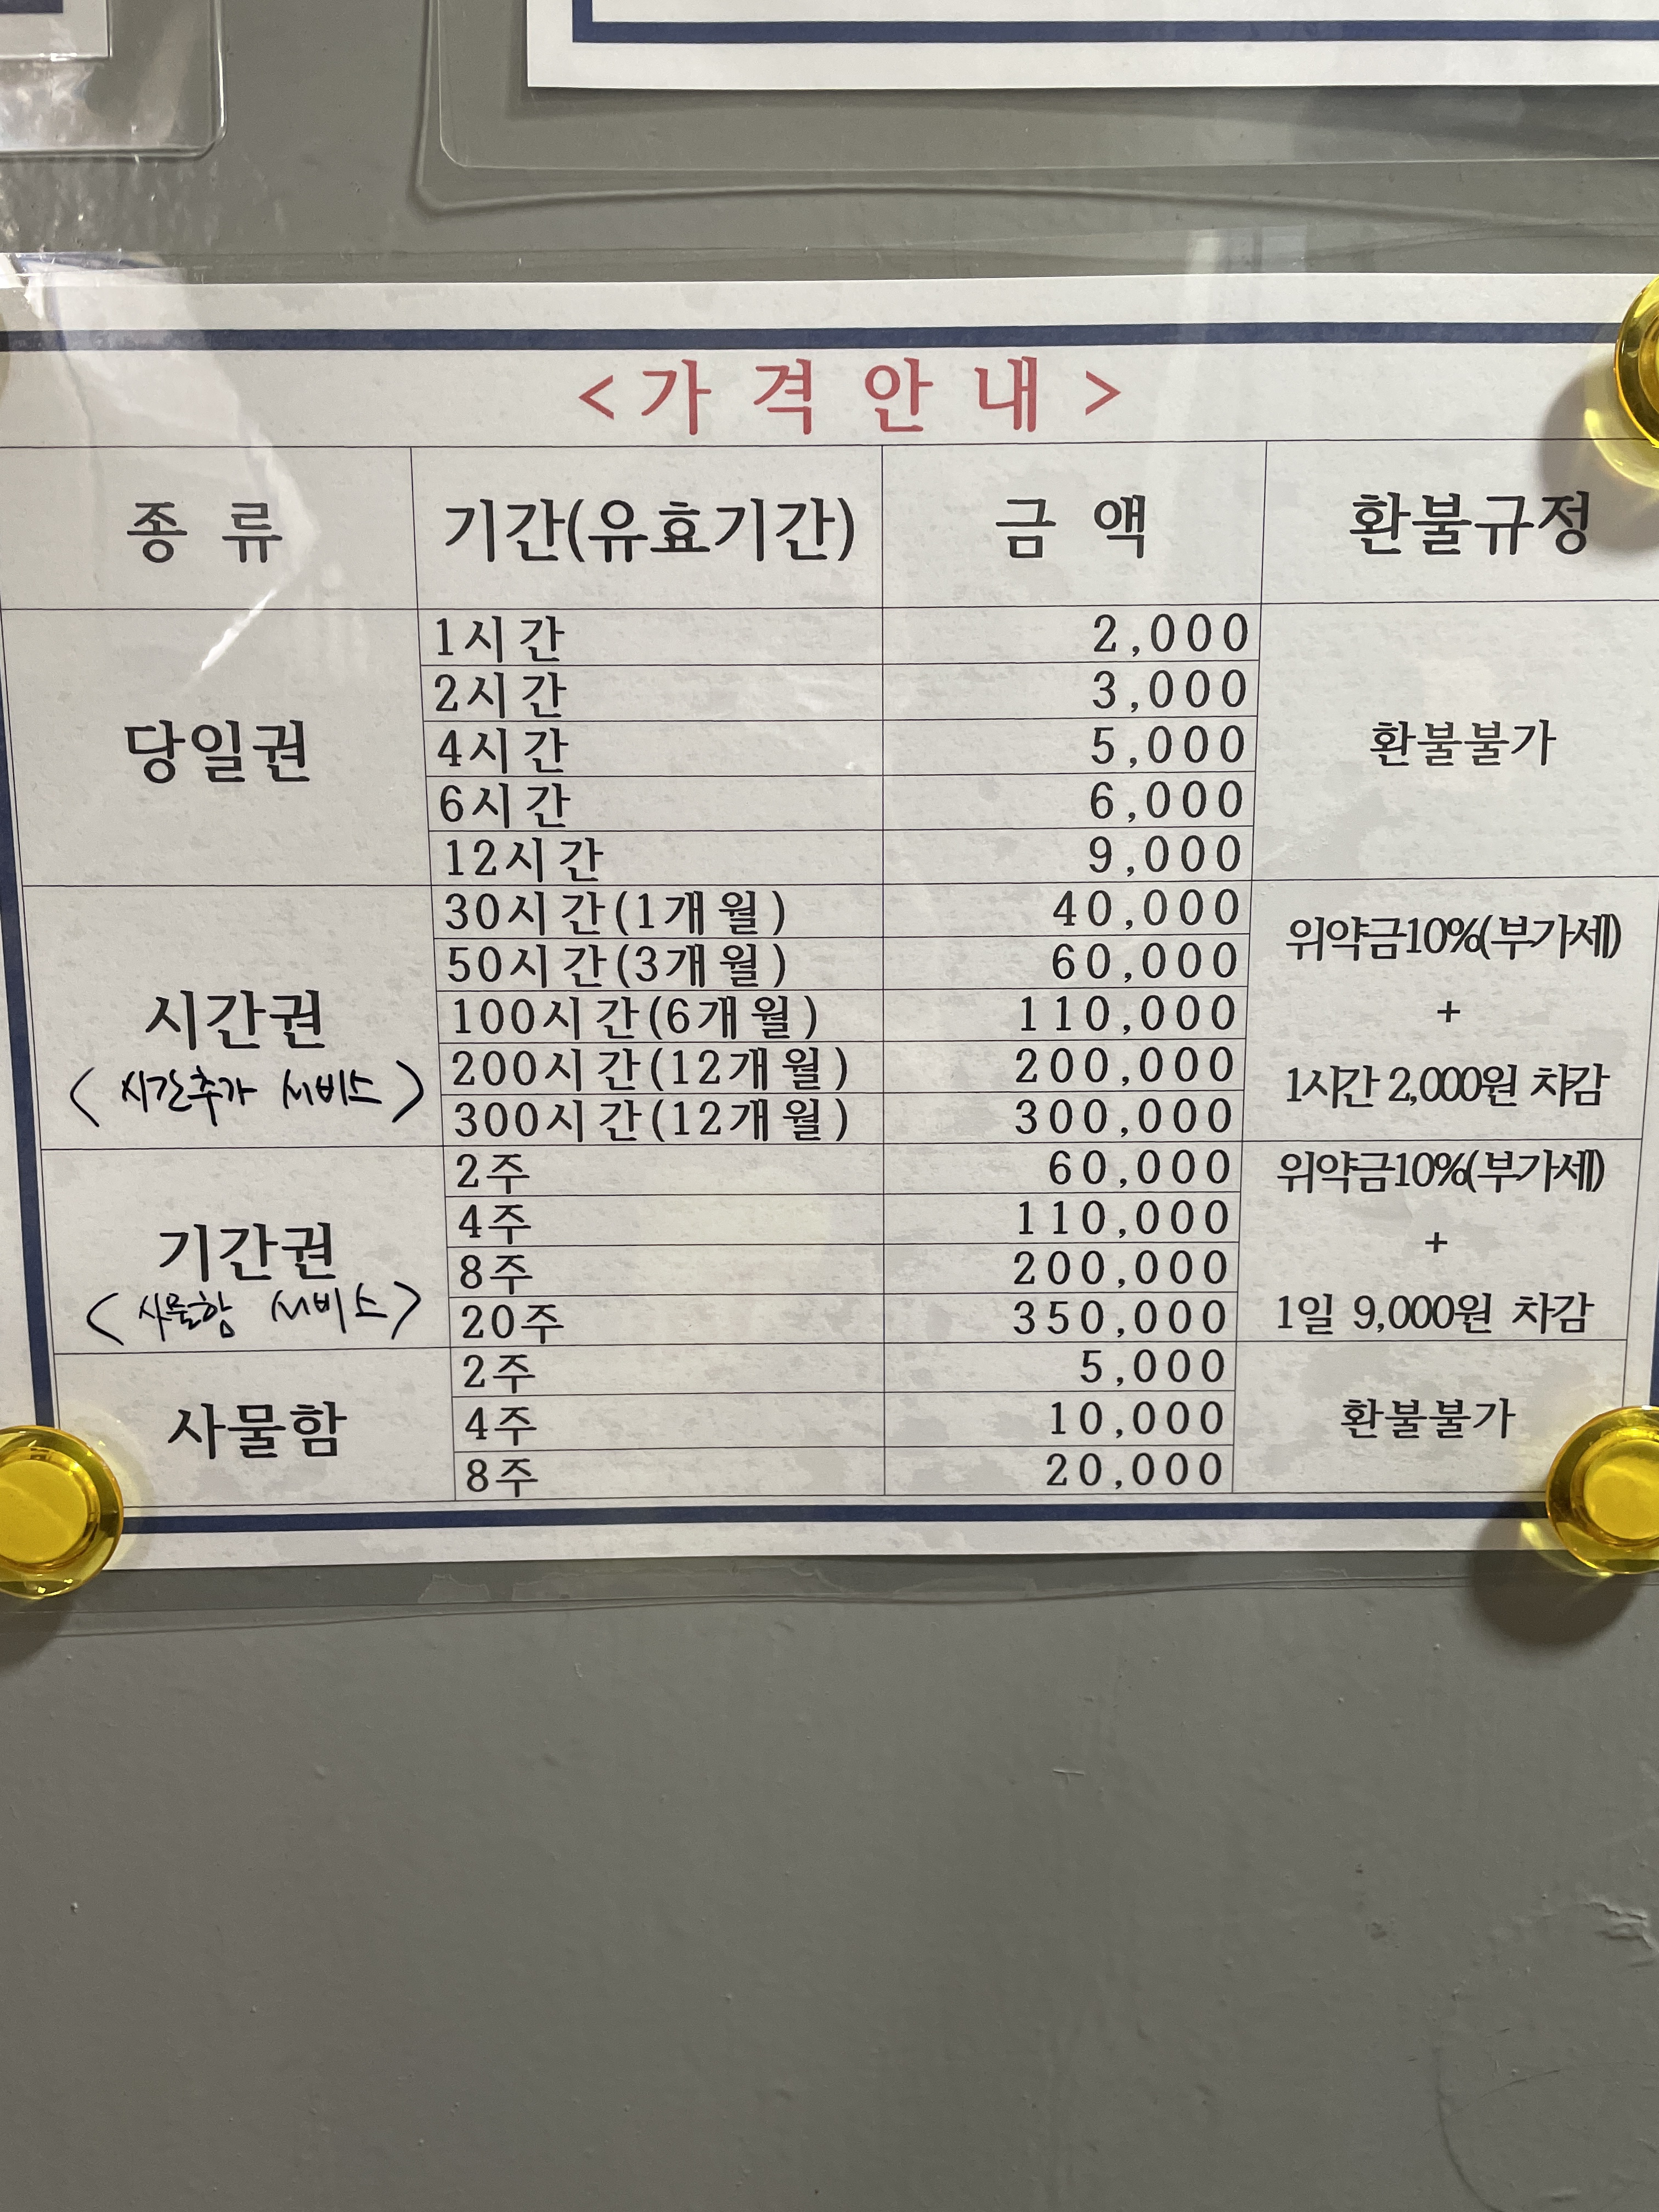 <가격안내>
종류 기간(유효기간) 금액 환불규정
당일권
1시간 2,000
2시간 3,000
4시간 5,000
6시간 6,000
12시간 9,000
환불불가
시간권
<시간추가 서비스>
30시간(1개월) 40,000
50시간(3개월) 60,000
100시간(6개월) 110,000
200시간(12개월) 200,000
300시간(12개월) 300,000
위약금10%(부가세)
+
1시간 2,000원 차감
기간권
<사물함 서비스>
2주 60,000
4주 110,000
8주 200,000
20주 350,000
위약금10%(부가세)
+
1일 9,000원 차감
사물함
2주 5,000
4주 10,000
8주 20,000
환불불가